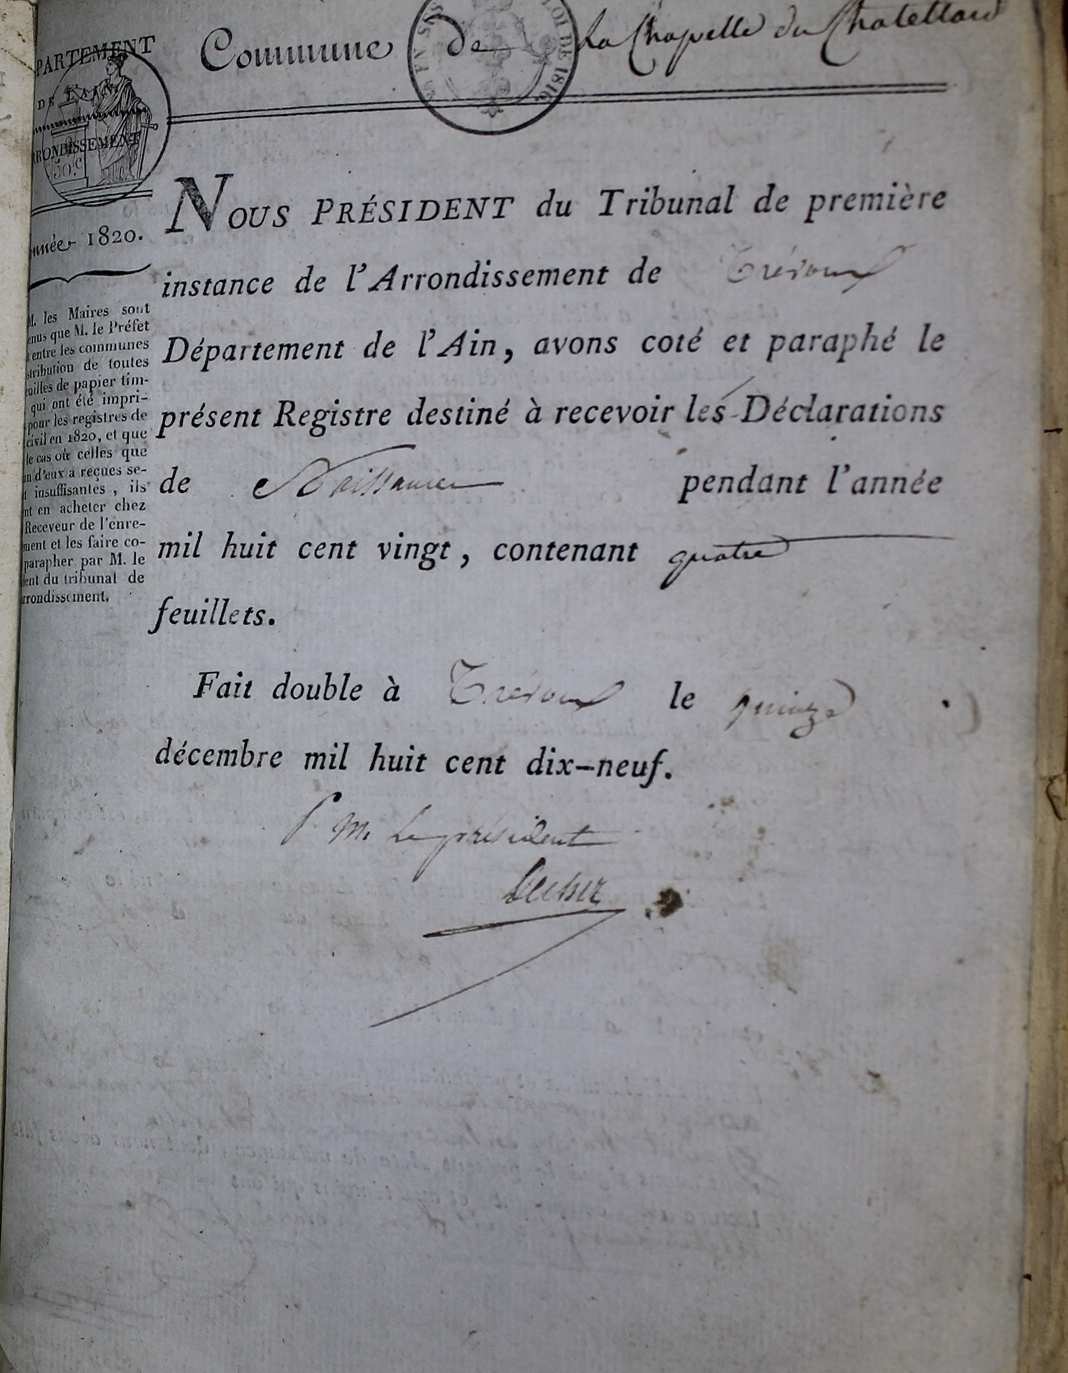 PARTEMENT
DE L'AIN
RONDISSEMENT
50.c
Commune de La Chapelle du Chatellard
LOI DE 1816
nnée 1820.
M. les Maires sont
enus que M. le Préfet
entre les communes
stribution de toutes
uilles de papier tim-
qui ont été impri-
pour les registres de
civil en 1820, et que
le cas où celles que
un d'eux a reçues se-
t insuffisantes, ils
nt en acheter chez
Receveur de l'enre-
ment et les faire co-
parapher par M. le
ent du tribunal de
rrondissement.
NOUS PRÉSIDENT du Tribunal de première
instance de l'Arrondissement de Trévoux
Département de l'Ain, avons coté et paraphé le
présent Registre destiné à recevoir les Déclarations
de Naissance pendant l'année
mil huit cent vingt, contenant quatre
feuillets.
Fait double à Trévoux le quinze
décembre mil huit cent dix-neuf.
P M. Le président